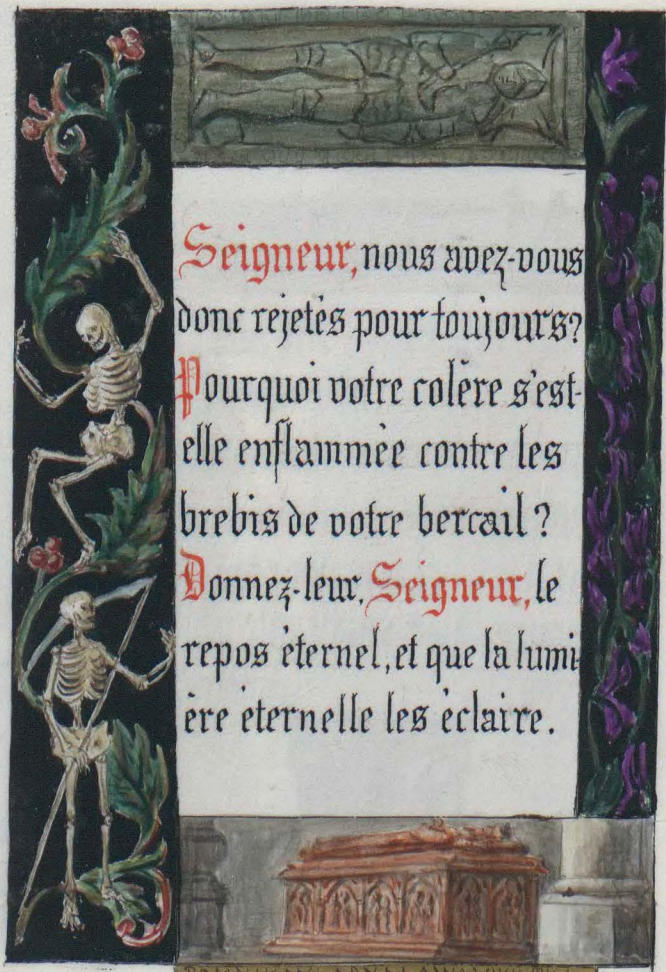 Seigneur, nous avez-vous
donc rejetés pour toujours?
Pourquoi votre colère s'est-
elle enflammée contre les
brebis de votre bercail ?
Donnez-leur, Seigneur, le
repos éternel, et que la lumi-
ère éternelle les éclaire.